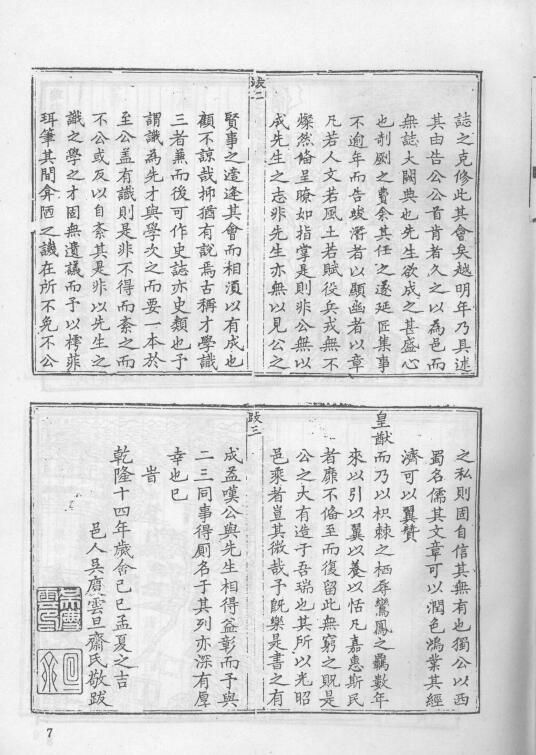 誌之克修此其會矣越明年乃具述
其由告公公首肯者久之以為邑而
無誌大闕典也先生欲成之甚盛心
也剞劂之費余其任之遂延匠集事
不逾年而告竣潛者以顯幽者以章
凡若人文若風土若賦役兵戎無不
燦然俻呈瞭如指掌是則非公無以
成先生之志非先生亦無以見公之
跋二
賢事之遠逢其會而相須以有成也
顧不諒哉抑猶有說焉古稱才學識
三者兼而後可作史誌亦史類也予
謂識為先才與學次之而要一本於
至公盖有識則是非不得而紊之而
不公或反以自紊其是非以先生之
識之學之才固無遺議而予以樗菲
珥筆其間弇陋之譏在所不免不公
之私則固自信其無有也獨公以西
蜀名儒其文章可以潤色鴻業其經
濟可以翼贊
皇猷而乃以枳棘之栖辱鸞鳳之羈數年
來以引以翼以養以恬凡嘉惠斯民
者靡不俻至而復留此無窮之貺是
公之大有造于吾瑞也其所以光昭
邑乘者豈其微哉予旣樂是書之有
跋三
成益嘆公與先生相得益彰而予與
二三同事得厠名于其列亦深有厚
幸也已
旹
乾隆十四年歲侖己巳孟夏之吉
邑人吴廣雲旦齋氏敬跋
7